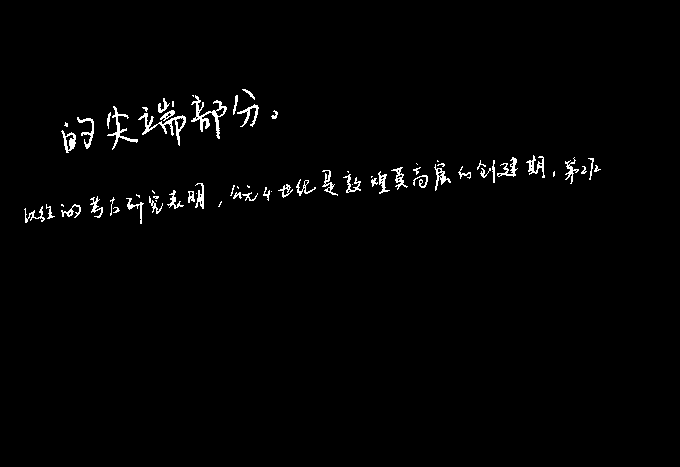 的尖端部分。
以往的考古研究表明，公元4世纪是敦煌莫高窟的创建期，第2